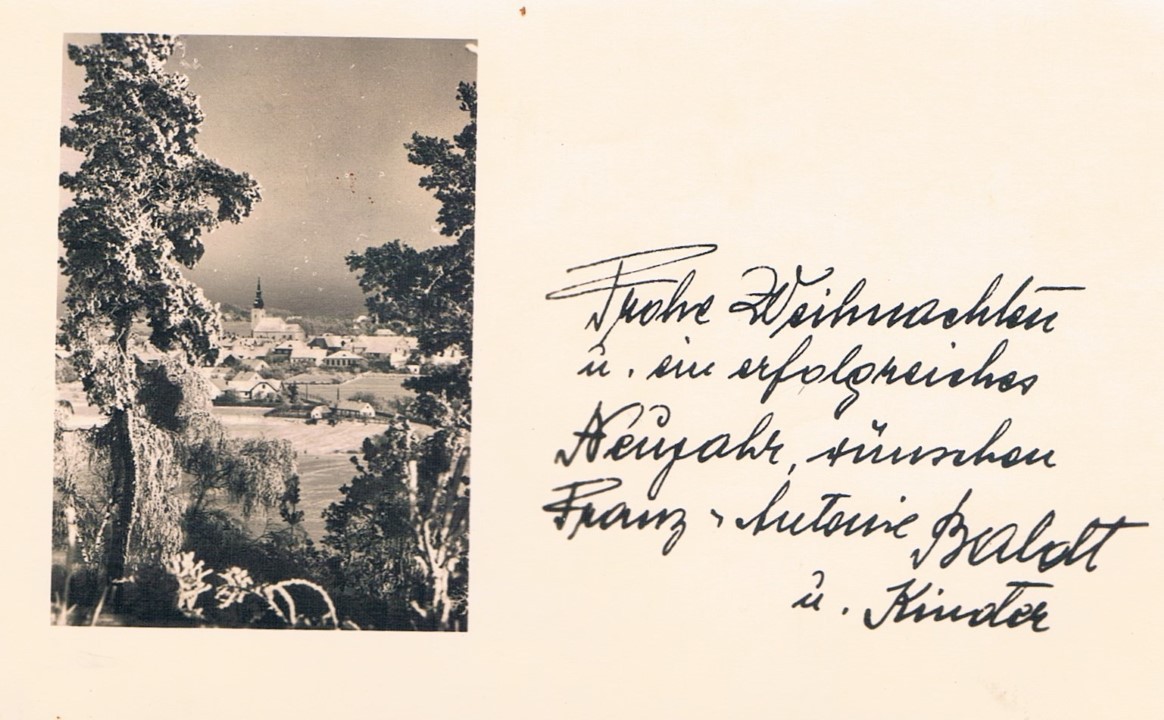 Frohe Weihnachten
u. ein erfolgreiches
Neujahr, wünschen
Franz, Antonie Baldt
u. Kinder